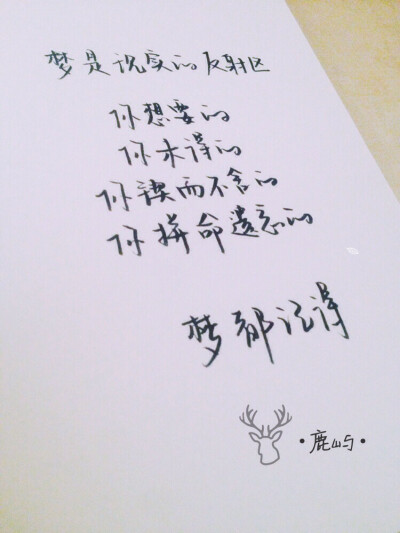 梦是现实的反射区
你想要的
你未得的
你锲而不舍的
你拼命遗忘的
梦都记得
•鹿屿•